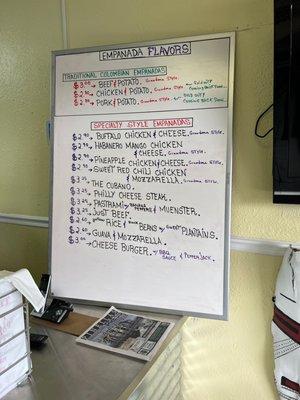 EMPANADA FLAVORS
TRADITIONAL COLOMBIAN EMPANADAS
$3.00 → BEEF & POTATO. Grandma Style. SOLD OUT
$2.90 → CHICKEN & POTATO. Grandma Style. Coming Back Soon.
$2.90 → PORK & POTATO. Grandma Style. SOLD OUT COMING BACK SOON.
SPECIALTY STYLE EMPANADAS
$2.90 → BUFFALO CHICKEN & CHEESE. Grandma Style.
$2.90 → HABANERO MANGO CHICKEN
& CHEESE. Grandma Style.
$2.90 → PINEAPPLE CHICKEN & CHEESE. Grandma Style.
$2.90 → SWEET RED CHILI CHICKEN
& MOZZARELLA. Grandma Style.
$3.25 → THE CUBANO.
$3.25 → PHILLY CHEESE STEAK.
$3.25 → PASTRAMI w/ BANANA PEPPERS & MUENSTER.
$3.25 → JUST BEEF.
$2.60 → RICE & BEANS w/ SWEET PLANTAINS.
$2.60 → GUAVA & MOZZARELLA.
$3.00 → CHEESE BURGER. w/ BBQ SAUCE & PEPPERJACK.